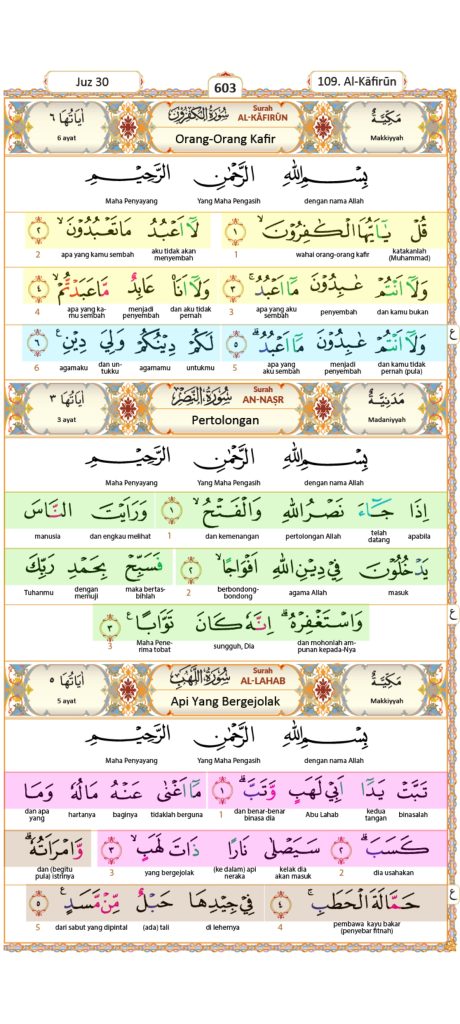 Juz 30
603
109. Al-Kāfirūn
مَكِّيَّةٌ
Makkiyyah
سُوْرَةُ الْكٰفِرُوْنَ
Surah AL-KĀFIRŪN
Orang-Orang Kafir
اٰيَاتُهَا ٦
6 ayat
بِسْمِ اللّٰهِ الرَّحْمٰنِ الرَّحِيْمِ
dengan nama Allah Yang Maha Pengasih Maha Penyayang
قُلْ يٰٓاَيُّهَا الْكٰفِرُوْنَۙ ١ لَآ اَعْبُدُ مَا تَعْبُدُوْنَۙ ٢
katakanlah (Muhammad) wahai orang-orang kafir 1 aku tidak akan menyembah apa yang kamu sembah 2
وَلَآ اَنْتُمْ عٰبِدُوْنَ مَآ اَعْبُدُۚ ٣ وَلَآ اَنَا۠ عَابِدٌ مَّا عَبَدْتُّمْۙ ٤
dan kamu bukan penyembah apa yang aku sembah 3 dan aku tidak pernah menjadi penyembah apa yang ka-mu sembah 4
وَلَآ اَنْتُمْ عٰبِدُوْنَ مَآ اَعْبُدُۗ ٥ لَكُمْ دِيْنُكُمْ وَلِيَ دِيْنِ ٦ ع
dan kamu tidak pernah (pula) menjadi penyembah apa yang aku sembah 5 untukmu agamamu dan un-tukku agamaku 6
مَدَنِيَّةٌ
Madaniyyah
سُوْرَةُ النَّصْرِ
Surah AN-NAṢR
Pertolongan
اٰيَاتُهَا ٣
3 ayat
بِسْمِ اللّٰهِ الرَّحْمٰنِ الرَّحِيْمِ
dengan nama Allah Yang Maha Pengasih Maha Penyayang
اِذَا جَاۤءَ نَصْرُ اللّٰهِ وَالْفَتْحُۙ ١ وَرَاَيْتَ النَّاسَ
apabila telah datang pertolongan Allah dan kemenangan 1 dan engkau melihat manusia
يَدْخُلُوْنَ فِيْ دِيْنِ اللّٰهِ اَفْوَاجًاۙ ٢ فَسَبِّحْ بِحَمْدِ رَبِّكَ
masuk agama Allah berbondong-bondong 2 maka bertas-bihlah dengan memuji Tuhanmu
وَاسْتَغْفِرْهُۗ اِنَّهٗ كَانَ تَوَّابًا ٣ ع
dan mohonlah am-punan kepada-Nya sungguh, Dia Maha Pene-rima tobat 3
مَكِّيَّةٌ
Makkiyyah
سُوْرَةُ اللَّهَبِ
Surah AL-LAHAB
Api Yang Bergejolak
اٰيَاتُهَا ٥
5 ayat
بِسْمِ اللّٰهِ الرَّحْمٰنِ الرَّحِيْمِ
dengan nama Allah Yang Maha Pengasih Maha Penyayang
تَبَّتْ يَدَآ اَبِيْ لَهَبٍ وَّتَبَّۗ ١ مَآ اَغْنٰى عَنْهُ مَالُهٗ وَمَا
binasalah kedua tangan Abu Lahab dan benar-benar binasa dia 1 tidaklah berguna baginya hartanya dan apa yang
كَسَبَۗ ٢ سَيَصْلٰى نَارًا ذَاتَ لَهَبٍۙ ٣ وَّامْرَاَتُهٗۗ
dia usahakan 2 kelak dia akan masuk (ke dalam) api neraka yang bergejolak 3 dan (begitu pula) istrinya
حَمَّالَةَ الْحَطَبِۚ ٤ فِيْ جِيْدِهَا حَبْلٌ مِّنْ مَّسَدٍ ٥ ع
pembawa kayu bakar (penyebar fitnah) 4 di lehernya (ada) tali dari sabut yang dipintal 5